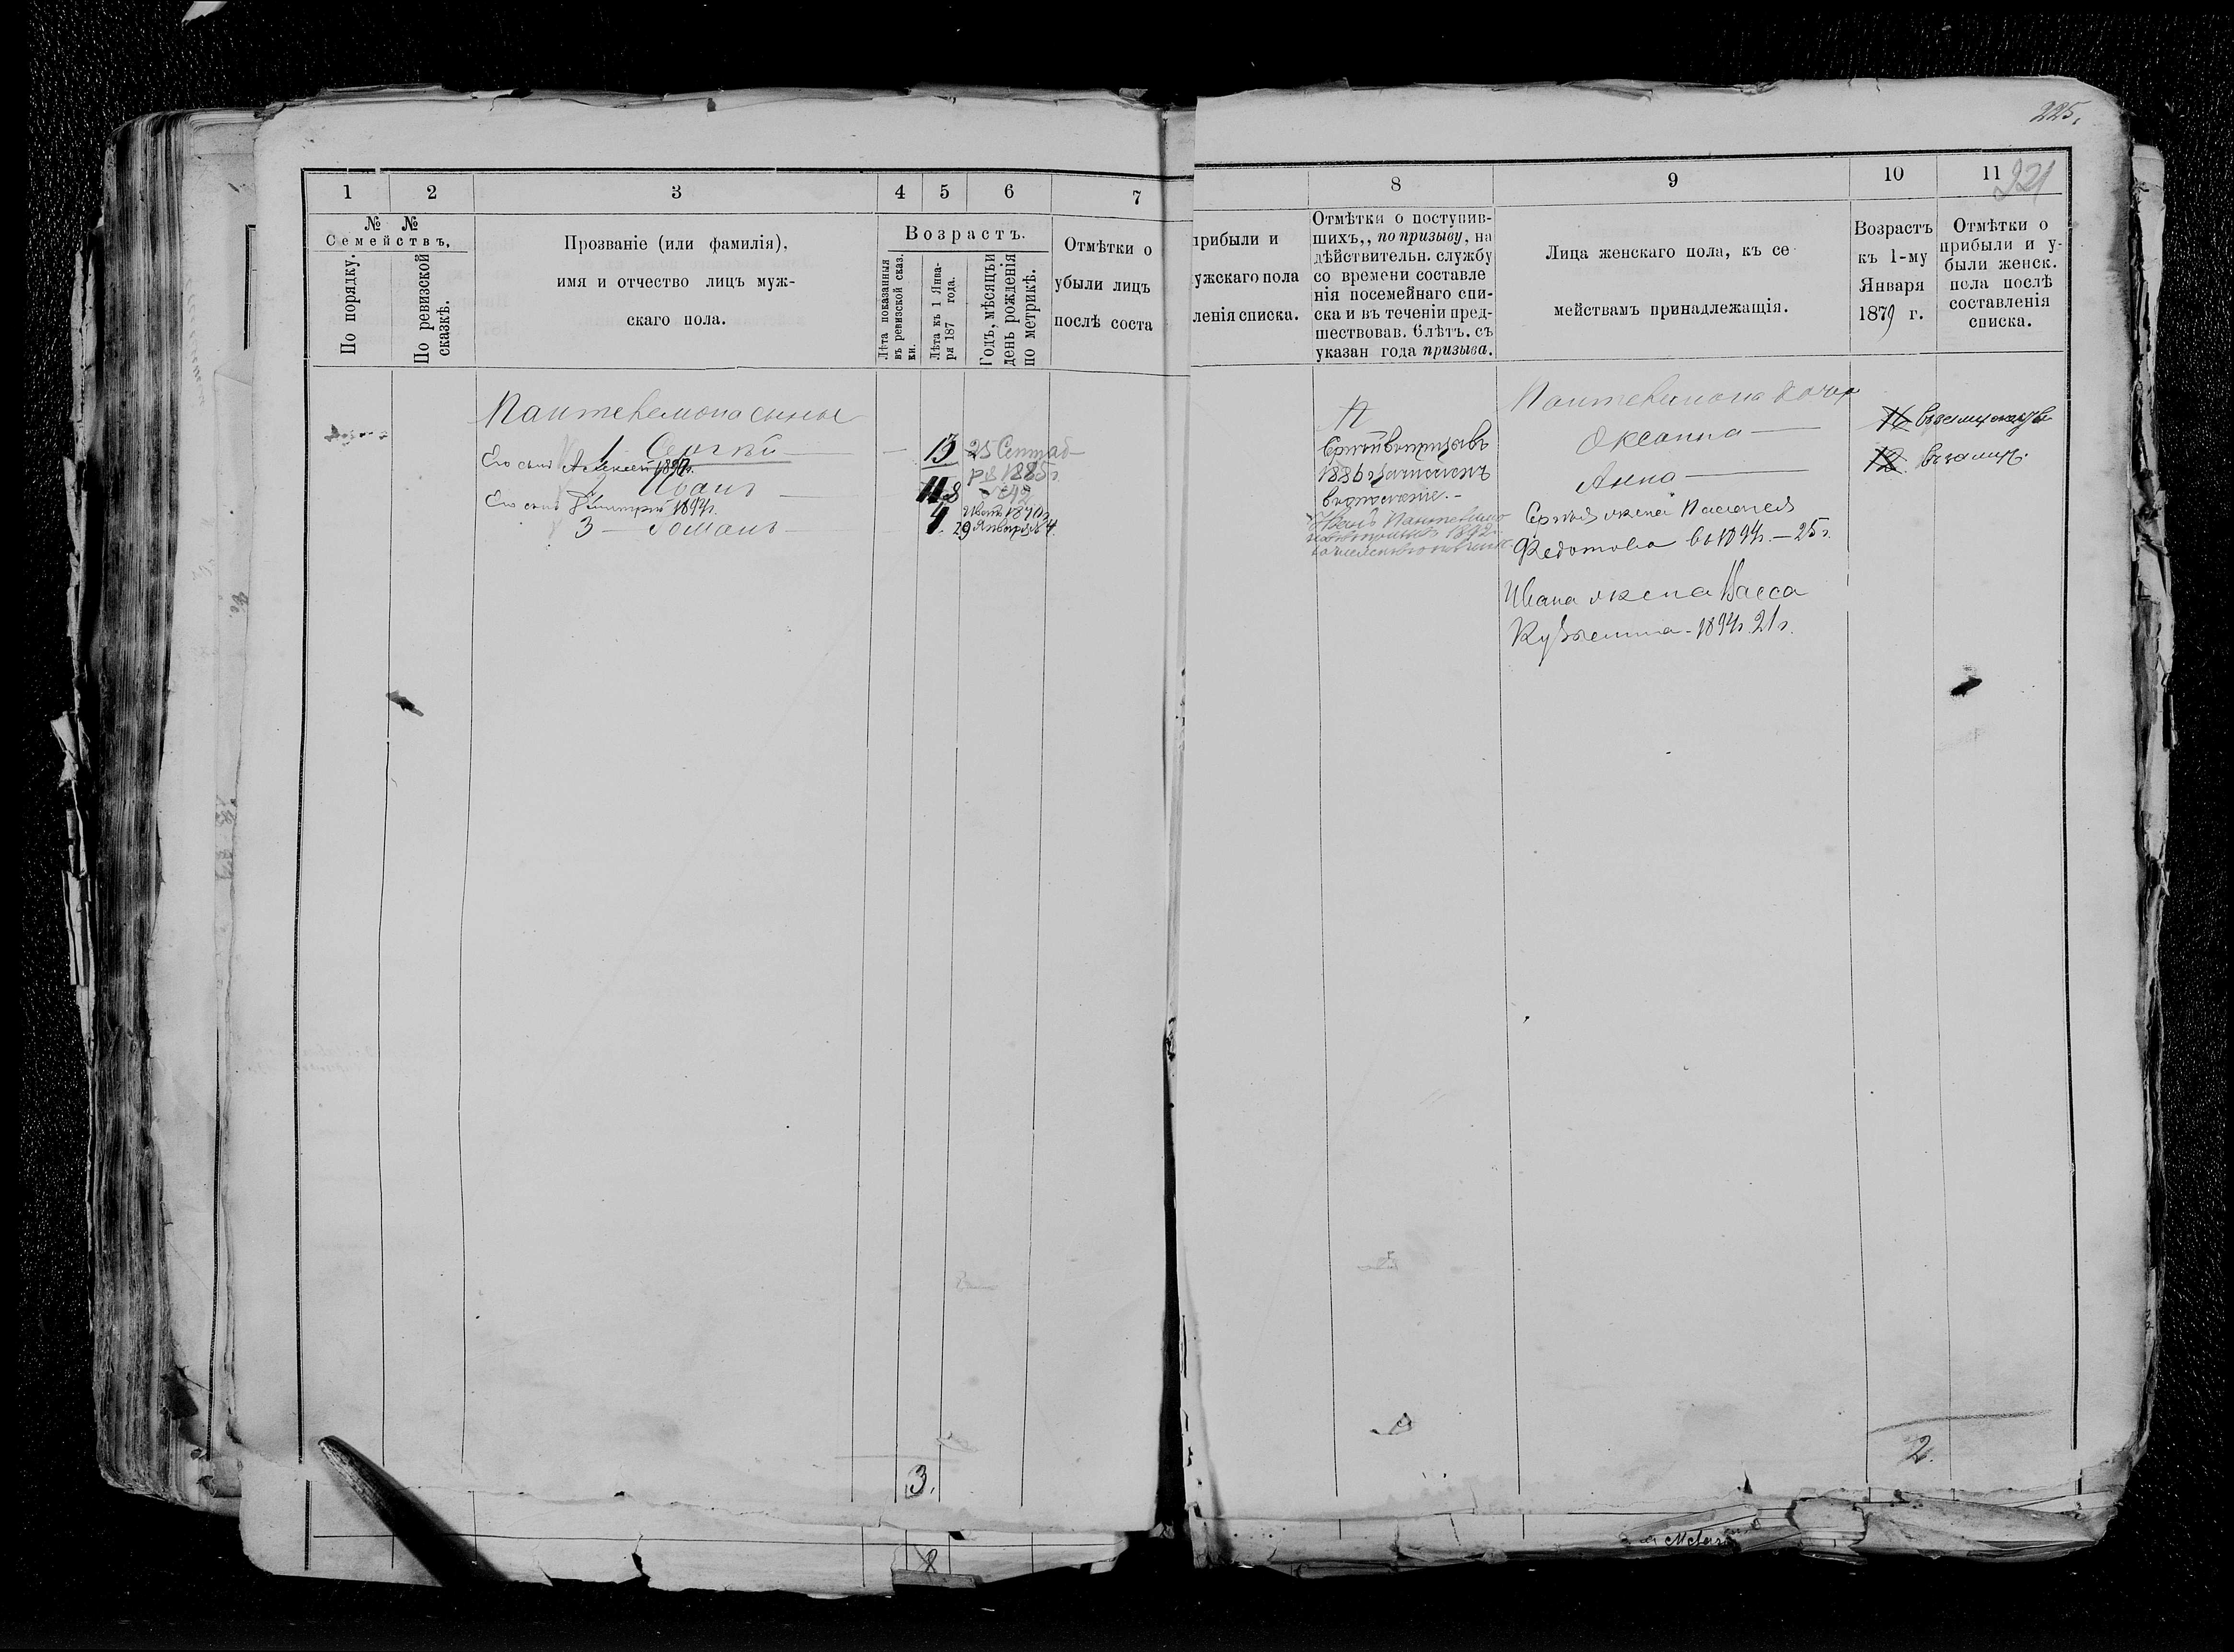 225.
221
1 2 3 4 5 6 7
№ № Семействъ.
По порядку.
По ревизской сказкѣ.
Прозваніе (или фамилія),
имя и отчество лицъ муж-
скаго пола.
Возрастъ.
Лѣта показанныя
въ ревизской сказ.
ки.
Лѣта къ 1 Янва-
ря 187 года.
Годъ, мѣсяцъ и
день рожденія
по метрикѣ.
Отмѣтки о
убыли лицъ
послѣ соста
8 9 10 11
прибыли и
ужскаго пола
ленія списка.
Отмѣтки о поступив-
шихъ,, по призыву, на
дѣйствительн. службу
со времени составле
нія посемейнаго спи-
ска и въ теченіи пред-
шествовав. 6 лѣтъ. съ
указан года призыва.
Лица женскаго пола, къ се
мействамъ принадлежащія.
Возрастъ
къ 1-му
Января
1879 г.
Отмѣтки о
прибыли и у-
были женск.
пола послѣ
составленія
списка.
Пантелемона сыны
1 Сергѣй — — 13 25 Сентяб-
ря 1885 г.
Его сынъ Алексѣй 1890 г.
2 Иванъ —
Его сынъ Димитрій 1894 г.
3 — Романъ — 4. 29 Января
3.
8
Сергѣй въ призывъ
1886 г. зачисленъ
въ ополченіе. -
Иванъ Пантелимо
1892
Пантелимона дочери
Оксанна — 16
Анна — 12. въ замуж.
Сергѣя жена Пелагея
Федотова въ 1894 г. — 25 г.
Ивана жена Васса
Кузьмина - 1894 г. 21 г.
2.